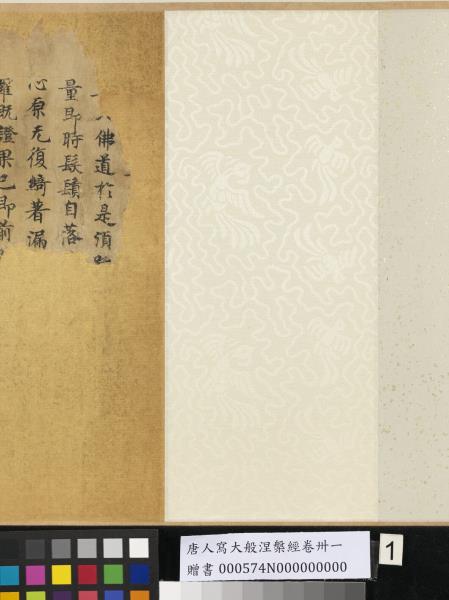 佛道於是須
量即時髮鬚自落
心原无復縛著漏
羅既證果已即前
唐人寫大般涅槃經卷卅一
贈書 000574N000000000
1